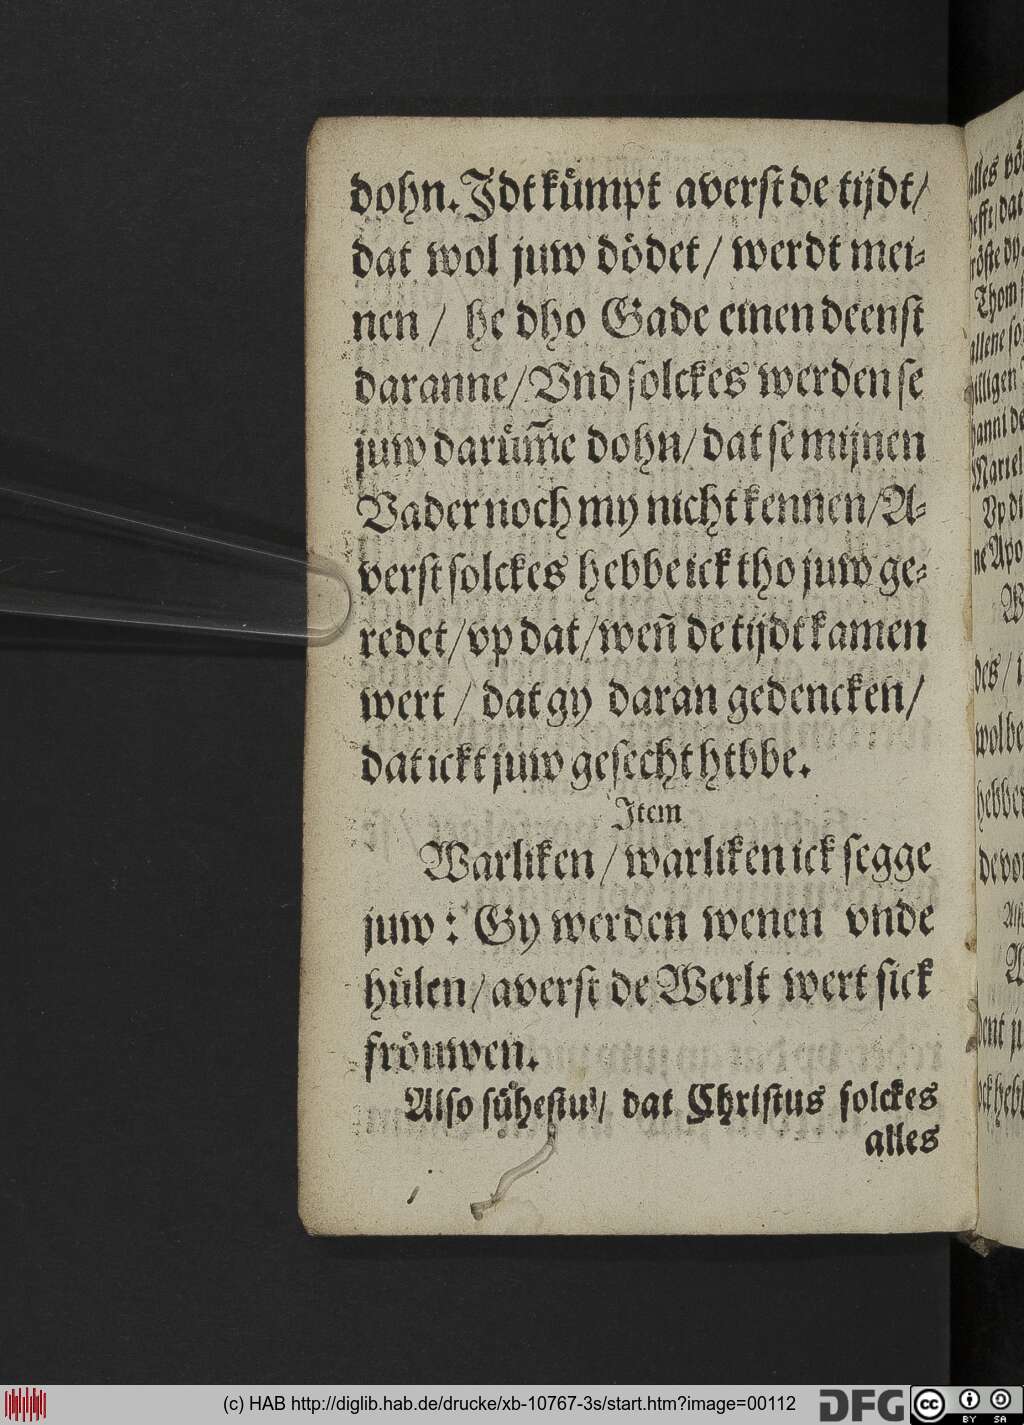 dohn. Jdt kuͤmpt averst de tijdt/
dat wol juw doͤdet / werdt mei⸗
nen / he dho Gade einen deenst
daranne/ Vnd solckes werden se
juw daruͤm̃e dohn/ dat se mijnen
Vader noch my nicht kennen/ A⸗
verst solckes hebbe ick tho juw ge⸗
redet/ vp dat/ weñ de tijdt kamen
wert / dat gy daran gedencken/
dat ickt juw gesecht htbbe.
Jtem
Warliken / warliken ick segge
juw : Gy werden wenen vnde
huͤlen/ averst de Werlt wert sick
froͤuwen.
Also suͤhestu/ dat Christus solckes
alles
(c) HAB http://diglib.hab.de/drucke/xb-10767-3s/start.htm?image=00112
DFG
cc
BY SA